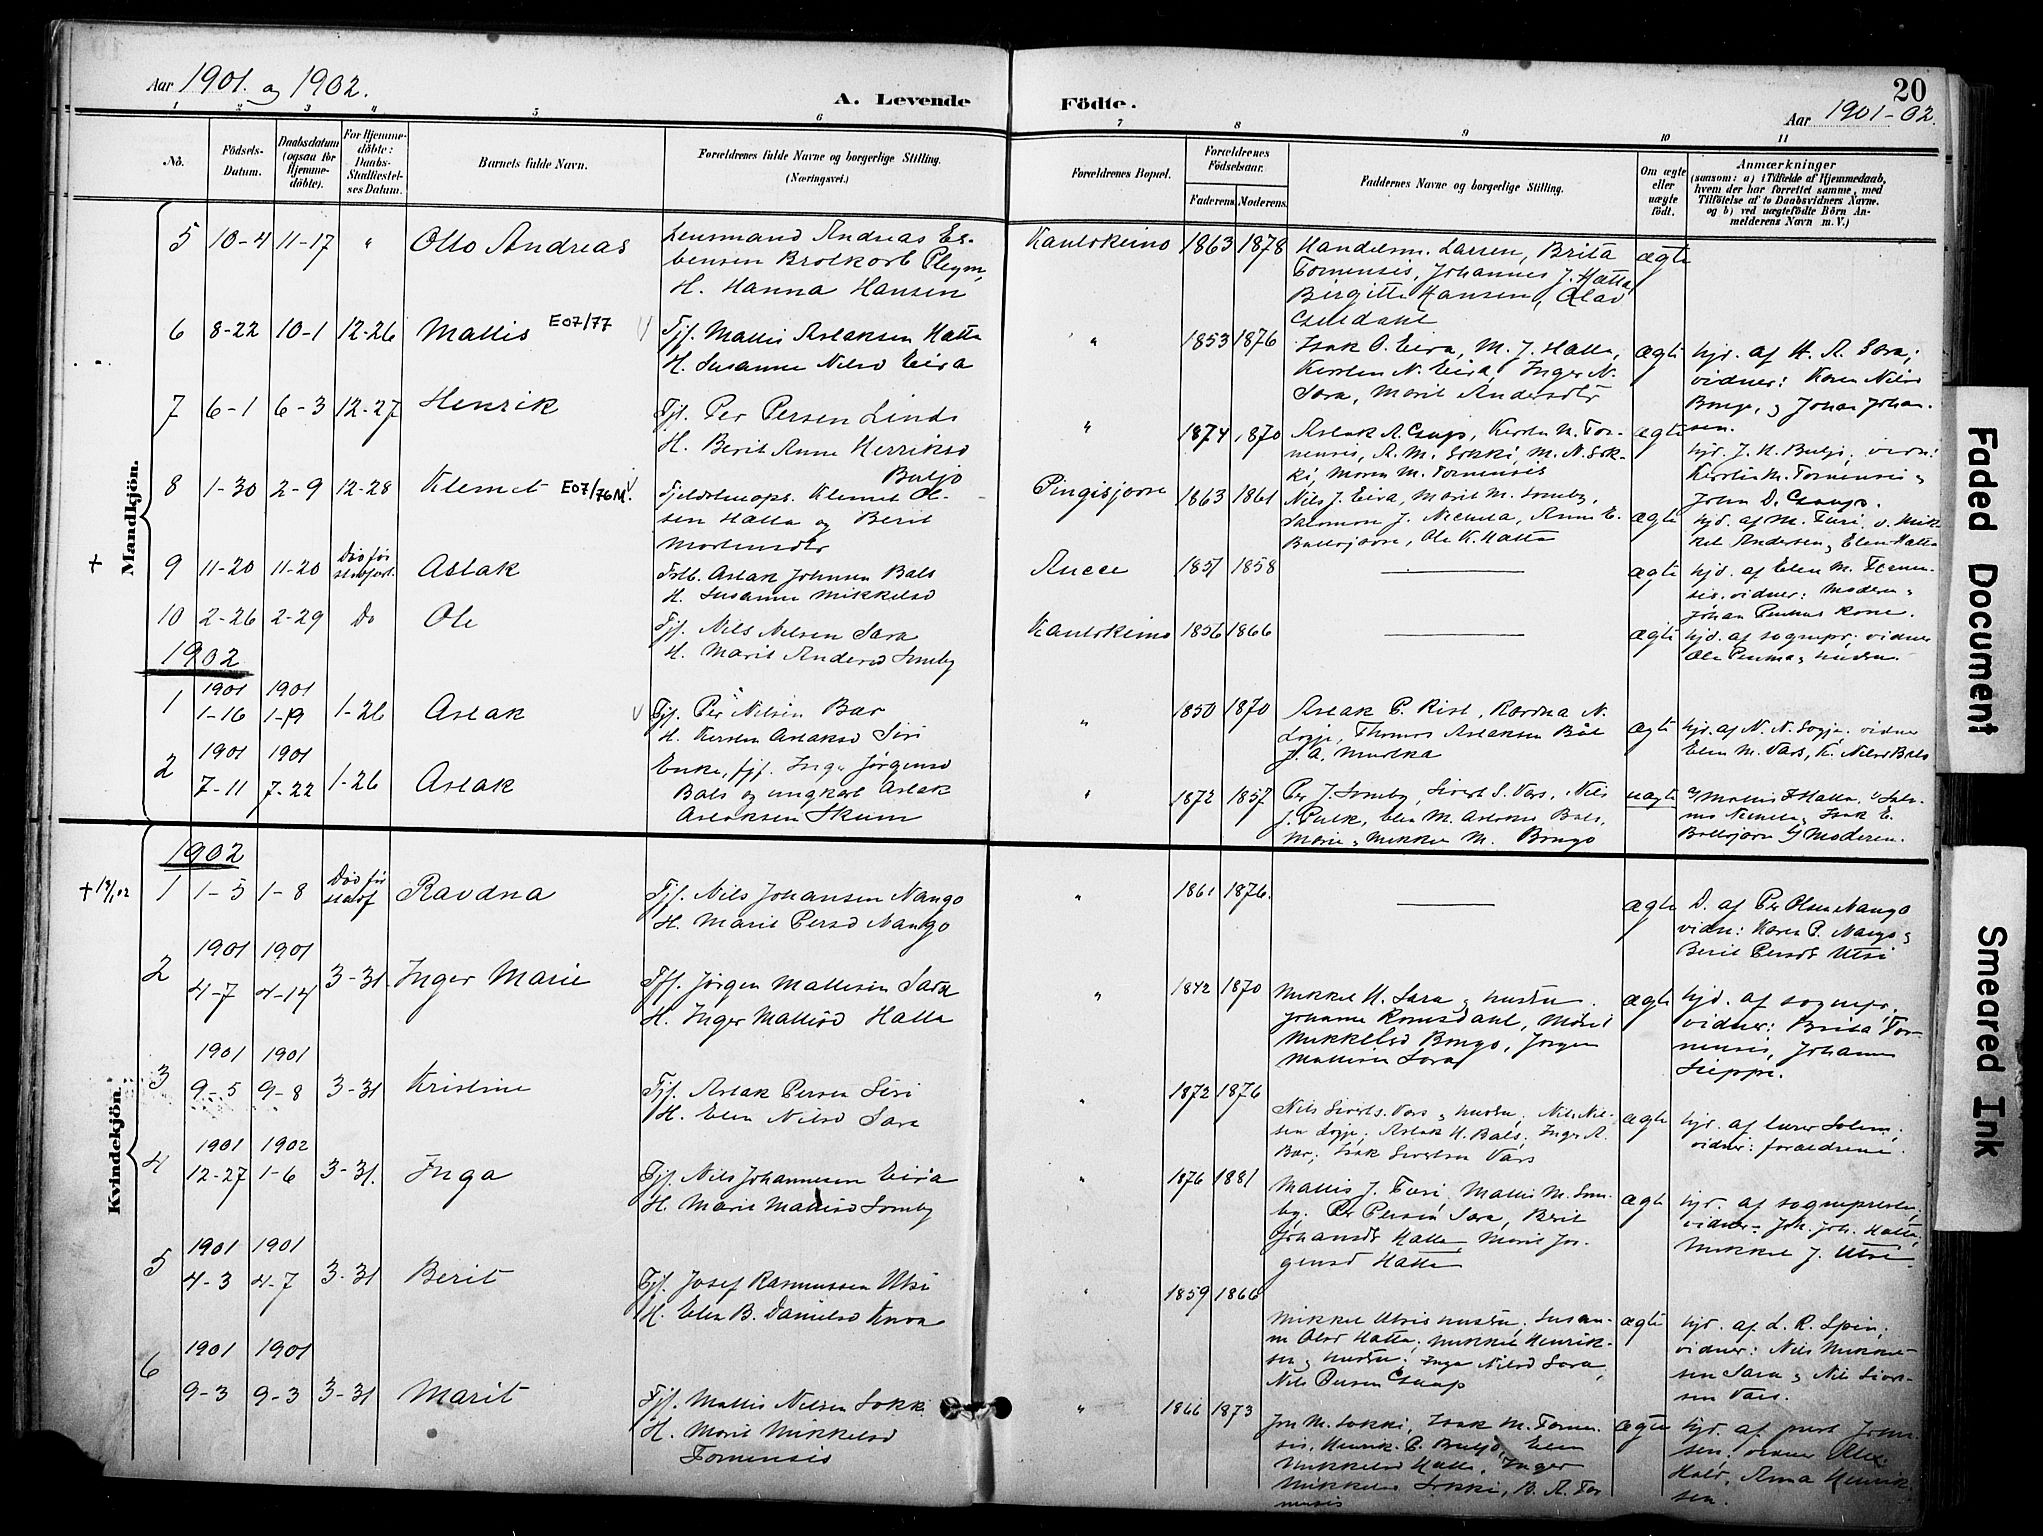 Aar 1901. og 1902.
A. Levende Födte.
20
Aar 1901-02.
1 2 3 4 5 6 7 8 9 10 11
No. Födsels-Datum. Daabsdatum (ogsaa for Hjemmedöbte). For Hjemmedöbte: Daabs-Stadfæstelses Datum. Barnets fulde Navn. Forældrenes fulde Navne og borgerlige Stilling. (Næringsvei.) Forældrenes Bopæl. Forældrenes Födselsaar. Faderens. Moderens. Faddernes Navne og borgerlige Stilling. Om ægte eller uægte födt. Anmærkninger (saasom: a) i Tilfælde af Hjemmedaab, hvem der har forrettet samme, med Tilföielse af to Daabsvidners Navne. og b) ved uægtefödte Börn Anmelderens Navn m. V.)
Mandkjön.
5 10-4 11-17 " Otto Andreas
Lensmand Andreas Es-
bensen Brolkorb Pleym,
H. Hanna Hansen
Kautokeino 1863 1878
Handelsm. Larsen, Brita
Tornensis, Johannes J. Hætta
Birgitte Hansen, Olav
ægte
6 8-22 10-1 12-26 Mattis E07/77
Fjf. Mattis Aslaksen Hætta
H. Susanne Nilsd Eira
" 1853 1876
Isak O. Eira, M. J. Hætta,
Kirsten N. Eira, Inger N.
Sara, Marit Andersdtr
ægte
hjd. af H. A. Sara;
vidner: Karen Nilsd
Bongo, og Johan Johan-
sen.
7 6-1 6-3 12-27 Henrik
Fjf. Per Persen Lind
H. Berit Anne Henriksd
Buljo
" 1874 1870
Aslak A. Csaup, Kirsten M. Tor-
nensis, A. M. Sokki, M. N. Sok-
ki, Maren M. Tornensis
ægte
hjd. J. H. Buljo, vidn:
Kirsten M. Tornensis og
John D. Csaup.
8 1-30 2-9 12-28 Klemet E07/76M
Fjeldstueops. Klemet Ol-
sen Hætta og Berit
Mortensdtr
Pingisjavre 1863 1861
Nils J. Eira, Marit M. Somby,
Salomon J. Nechela, Anne E.
Ballojavre, Ole K. Hætta
ægte
hjd. af M. Turi, v. Mik-
kel Andersen og Elen Hætta
+ 9 11-20 11-20 Död för stadf. Aslak
Aslak Johnsen Bals
H. Susanne Mikkelsd
1857 1858
ægte
hjd. af Elen M. Tornen-
sis. vidner: Moderen og
Johan kone.
10 2-26 2-29 Do Ole
Fjf. Nils Nilsen Sara
H. Marit Andersd Somby
Kautokeino 1856 1866
ægte
hjd. af sognepr. vidner
Ole og hustru.
1902
1 1901 1-16 1901 1-19 1-26 Aslak
Fjf. Per Nilsen Bær
H. Kirsten Aslaksd Siri
" 1850 1870
Aslak P. Rist, Ravdna N.
Logje, Thomas Aslaksen Bål
J. A. Murtka
ægte
hjd. af N. N. Logje. vidner
Elen M. Vars, K. Nilsd Bals
2 1901 7-11 1901 7-22 1-26 Aslak
Enke, fjf. Inga Jørgensd
Bals og ungkarl Aslak
Aslaksen Skum
" 1872 1857
Per J. Somby, Sivert S. Vars, Nils
J. Pulk, Elen M. Aslaksd Bals,
Marie og Mikkel M. Bongo
uægte
a) Mattis Hætta, v: Salo-
mo Nechela, Isak E.
Ballojavre b) Moderen.
Kvindekjön.
1902
1 1-5 1-8 Död för stadf Ravdna
Fjf. Nils Johansen Nango
H. Marit Persd Nango
" 1861 1876.
ægte
D. af Per Olsen Nango
vidne: Karen P. Nango og
Berit Persdt Utsi
2 1901 4-7 1901 4-14 3-31 Inger Marie
Fjf. Jørgen Mattisen Sara
H. Inger Mattisd Hætta
" 1842 1870
Mikkel H. Sara og hustru.
Johanne Romsdahl, Marit
Mikkelsd Bongo, Jørgen
Mattisen Sara
ægte
hjd. af sognepr.
vidner: Brita Tor-
nensis, Johannes
Sieppi.
3 1901 9-5 1901 9-8 3-31 Kristine
Fjf. Aslak Persen Siri
H. Elen Nilsd Sara
" 1872 1876
Nils Siverts. Vars og hustru, Nils Nil-
sen Logje, Aslak H. Bals, Inger A.
Bær, Isak Sivertsen Vars
ægte
hjd. af lærer Solem;
vidner: forældrene.
4 1901 12-27 1902 1-6 3-31. Inga
Fjf. Nils Johannesen Eira
H. Marit Mattisd Somby
" 1876 1881
Mattis J. Turi, Mattis M. Som-
by. Per Persen Sara, Berit
Johansdt Hætta, Marit Jør-
gensd Hætta
ægte
hjd. af sognepresten,
vidner Joh. Joh. Hætta,
Mikkel J. Utsi.
5 1901 4-3 1901 4-7 3-31 Berit
Fjf. Josef Rasmussen Utsi
H. Elen B. Danielsd Kvva
" 1859 1866
Mikkel Utsis hustru, Susan-
ne Olsd Hætta, Mikkel Henrik-
sen og hustru. Inga Nilsd Sara,
Nils Persen Csaup
ægte
hjd. af L. R. Spein;
vidner: Nils Mikkel-
sen Sara og Nils Siver-
sen Vars.
6 1901 9-3 1901 9-3 3-31 Marit
Fjf. Mattis Nilsen Sokki
H. Marit Mikkelsd
Tornensis
" 1866 1873
Jon M. Sokki, Isak M. Tornen-
sis, Henrik P. Buljo, Elen
Mikkelsd Hætta, Inger
Mikkelsd Sokki, B. A. Tor-
nensis
ægte
hjd. af John-
sen, vidner
Anna Henrik-
sen.
Faded Document
Smeared Ink